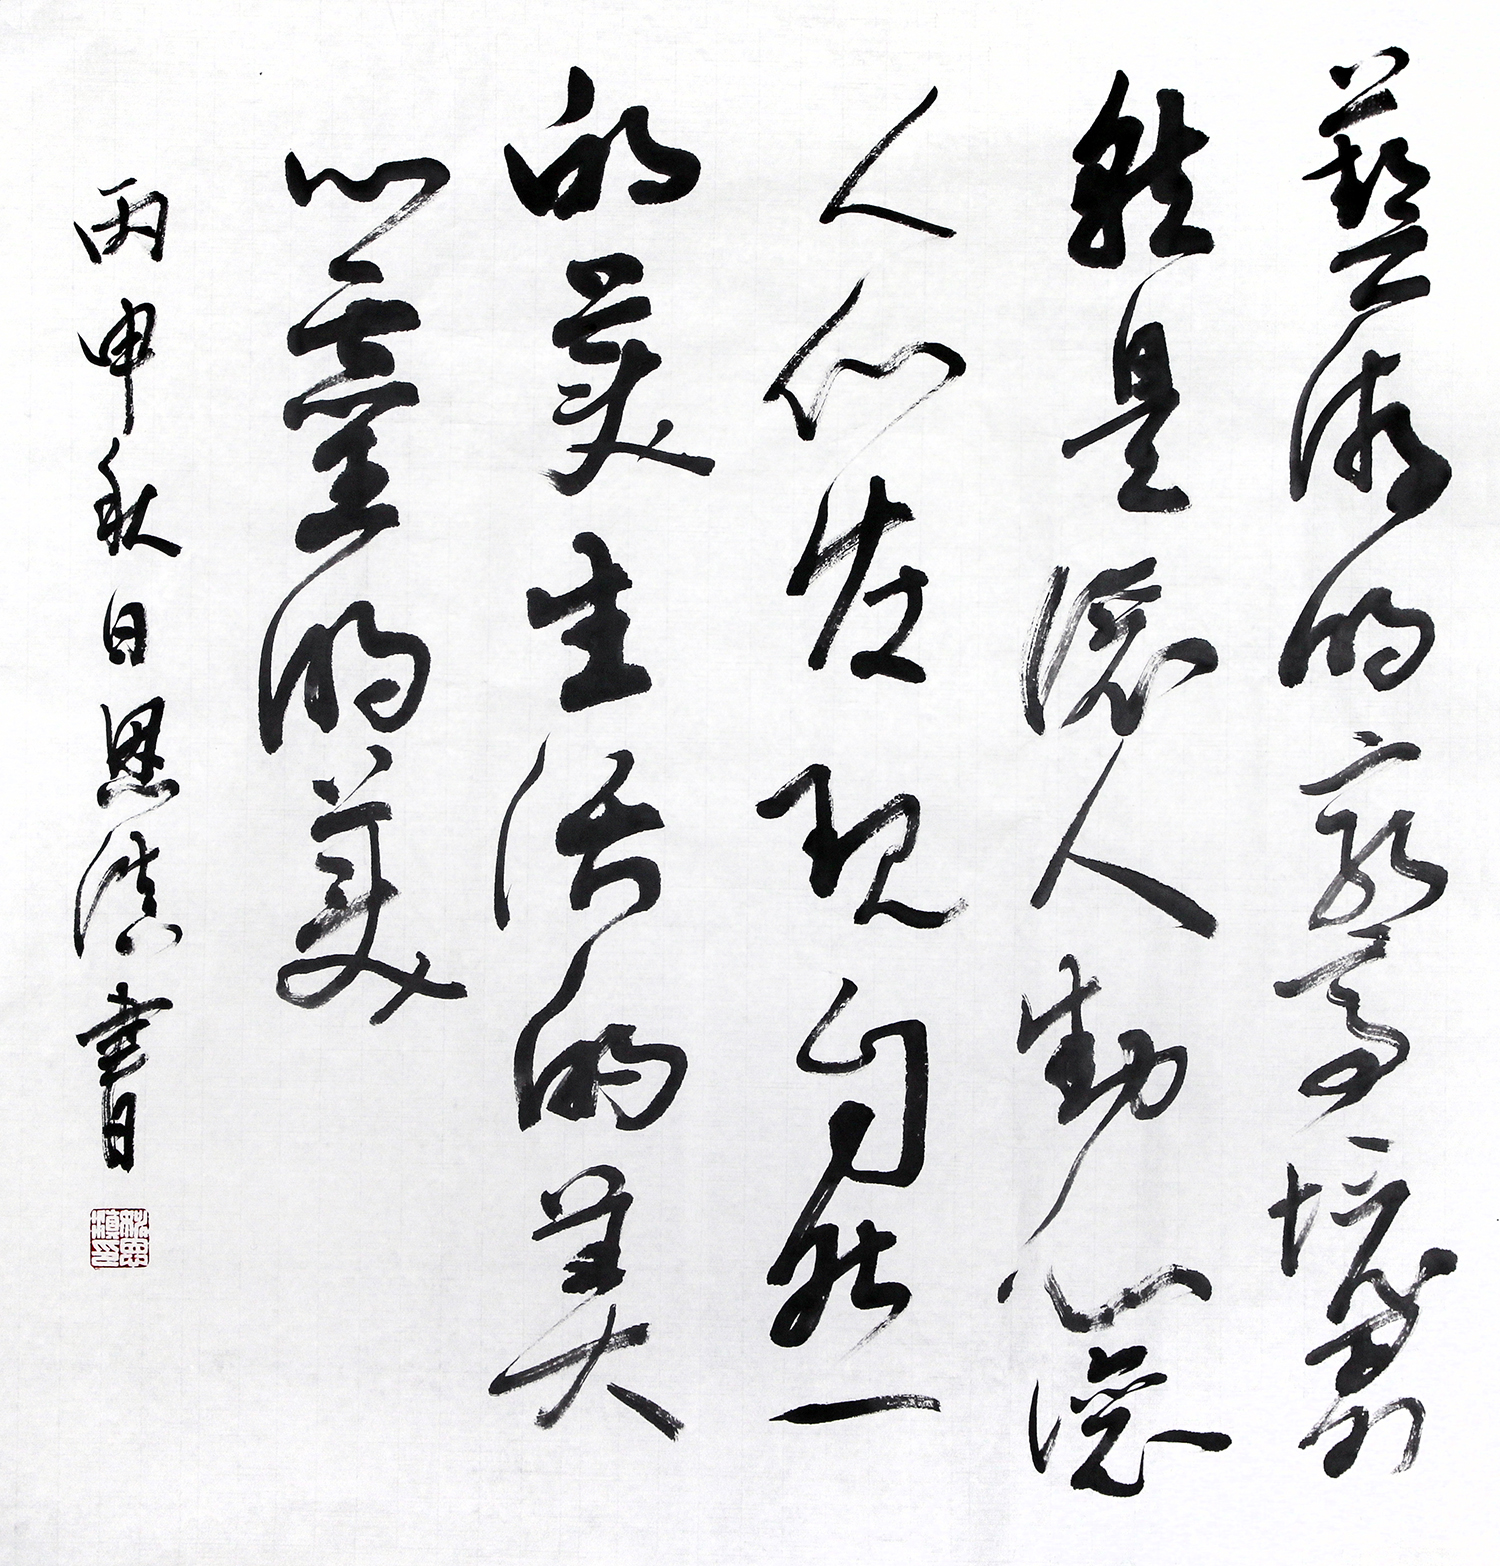 藝術的最高境界
就是讓人動心讓
人們發現自然一
的美生活的美
心靈的美
丙申秋日恩滇書